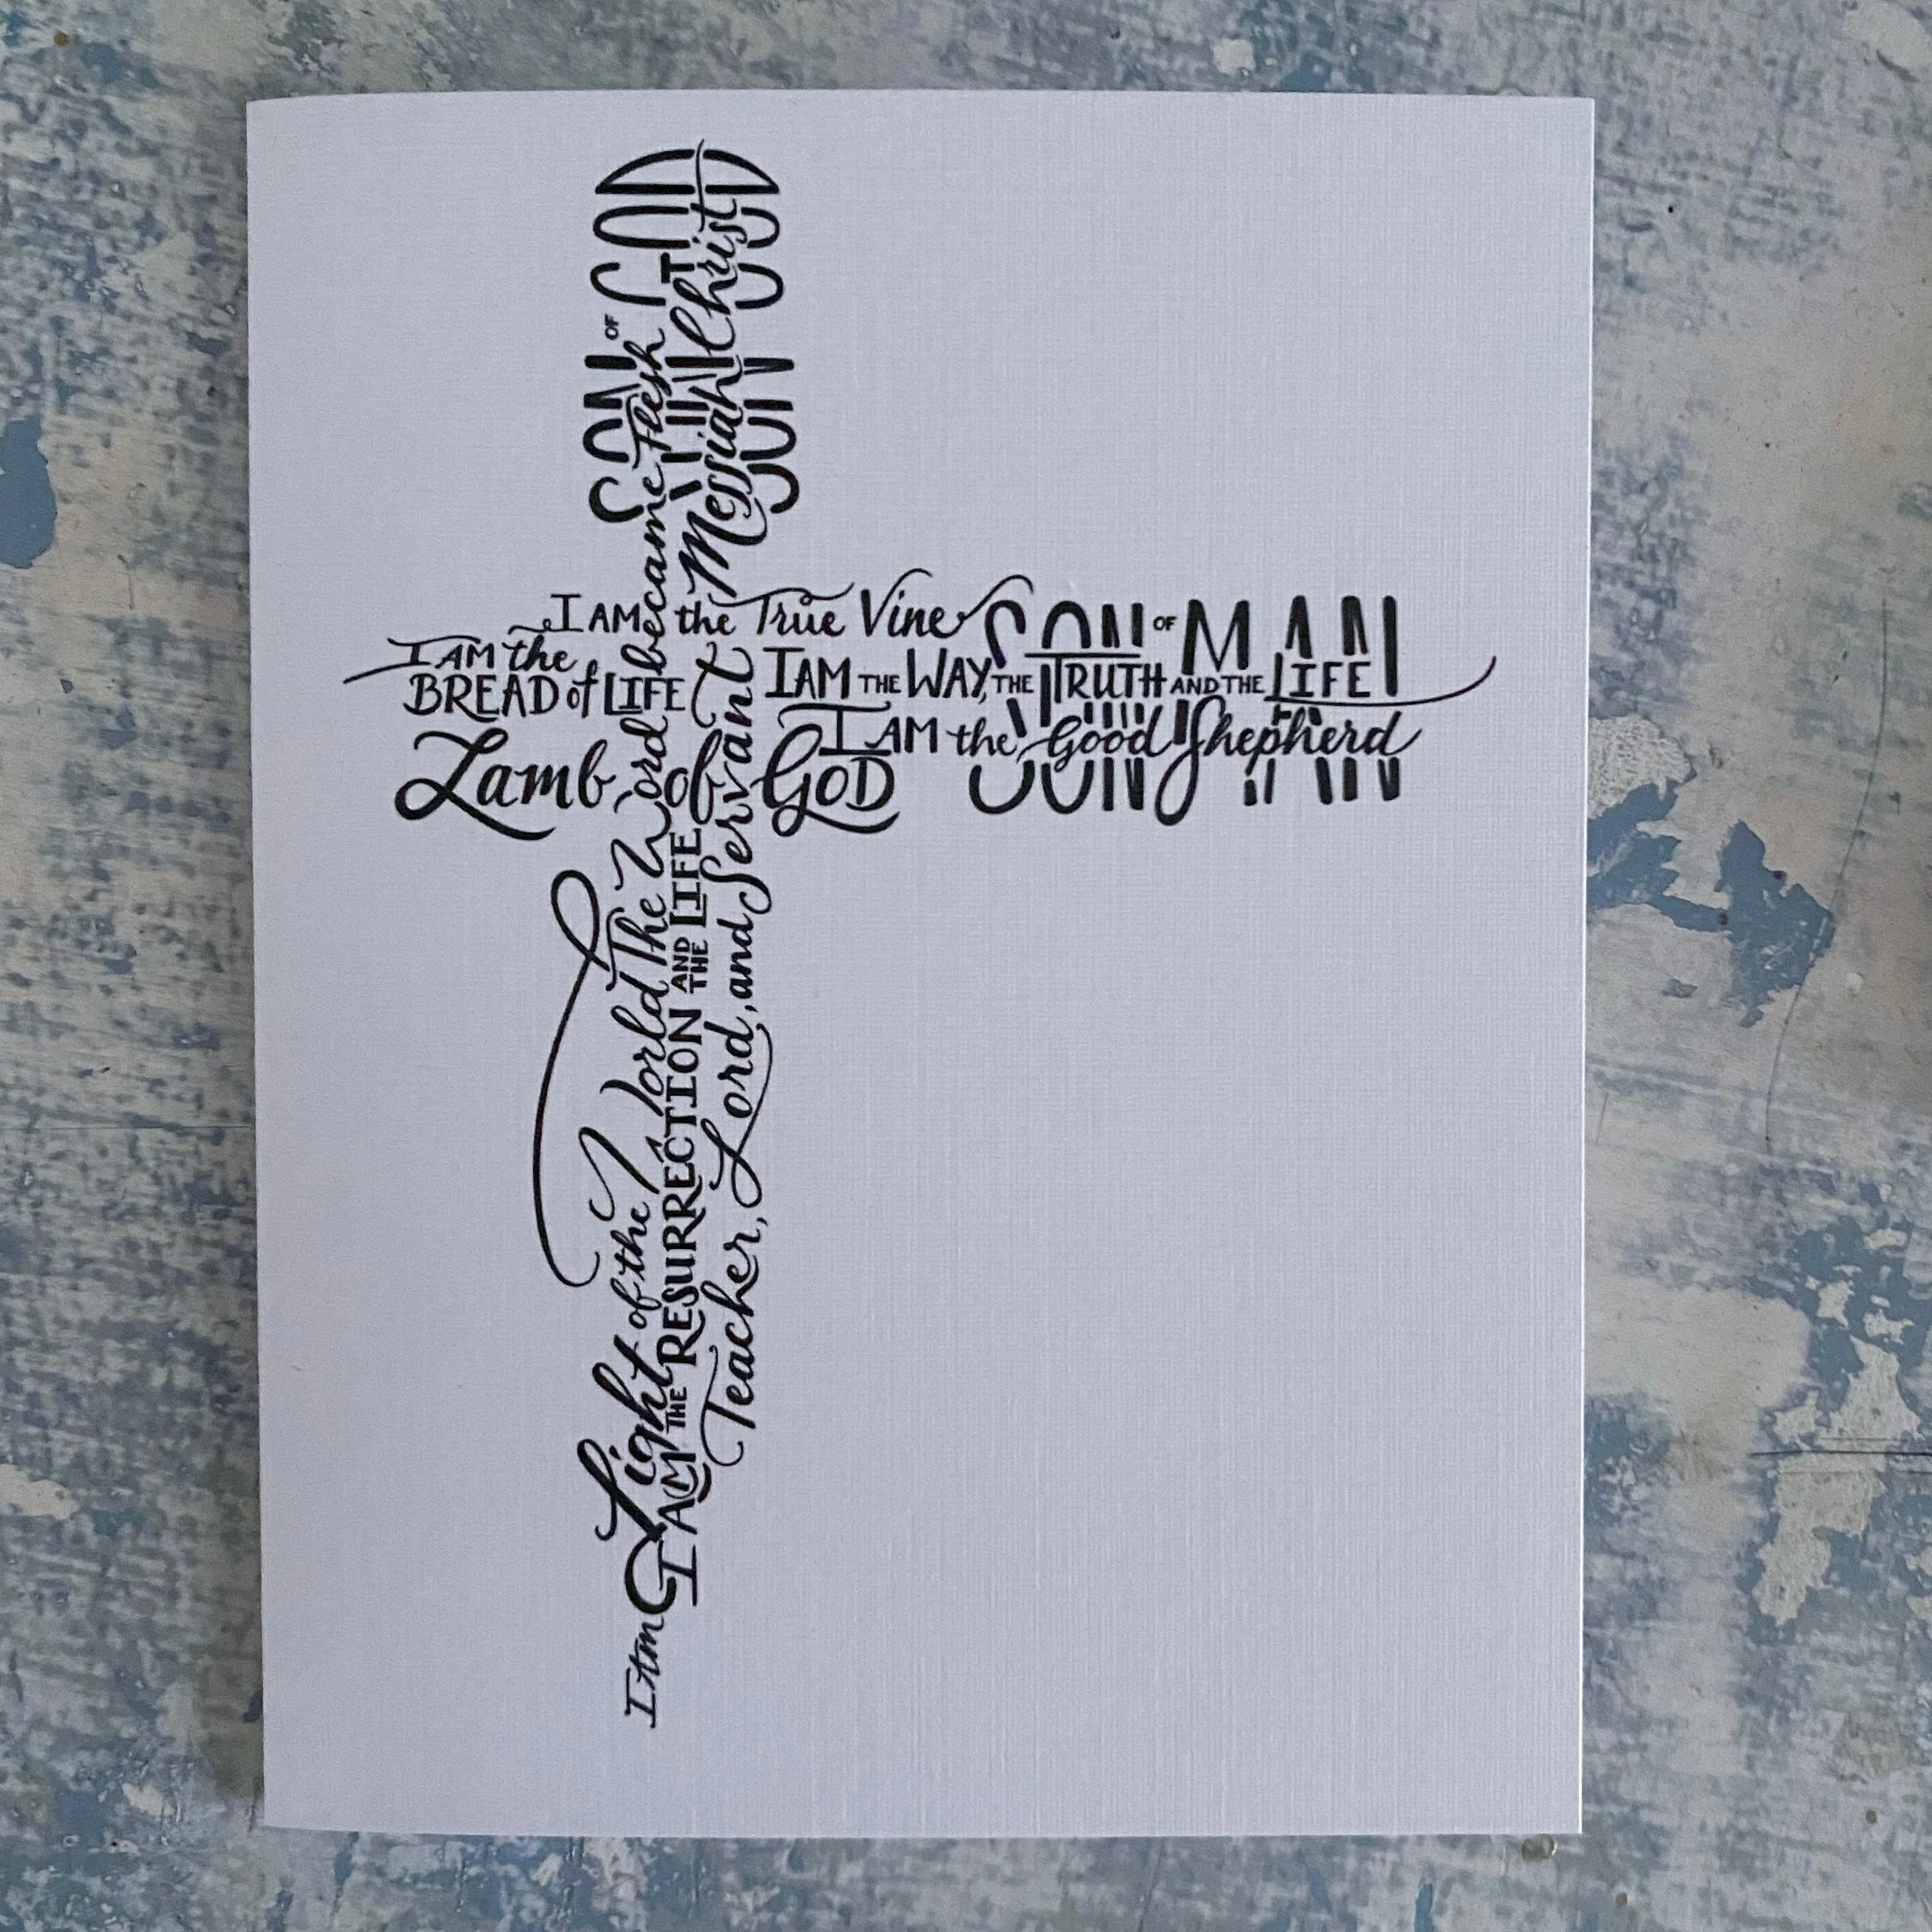 I AM the True Vine
SON OF MAN
I AM the
BREAD of LIFE
I AM THE WAY, THE TRUTH AND THE LIFE
I AM the Good Shepherd
Lamb of GOD
SON OF GOD
I Am Light of the World
The Word became Flesh
I AM THE RESURRECTION AND THE LIFE
Teacher, Lord, and Servant
Messiah Christ